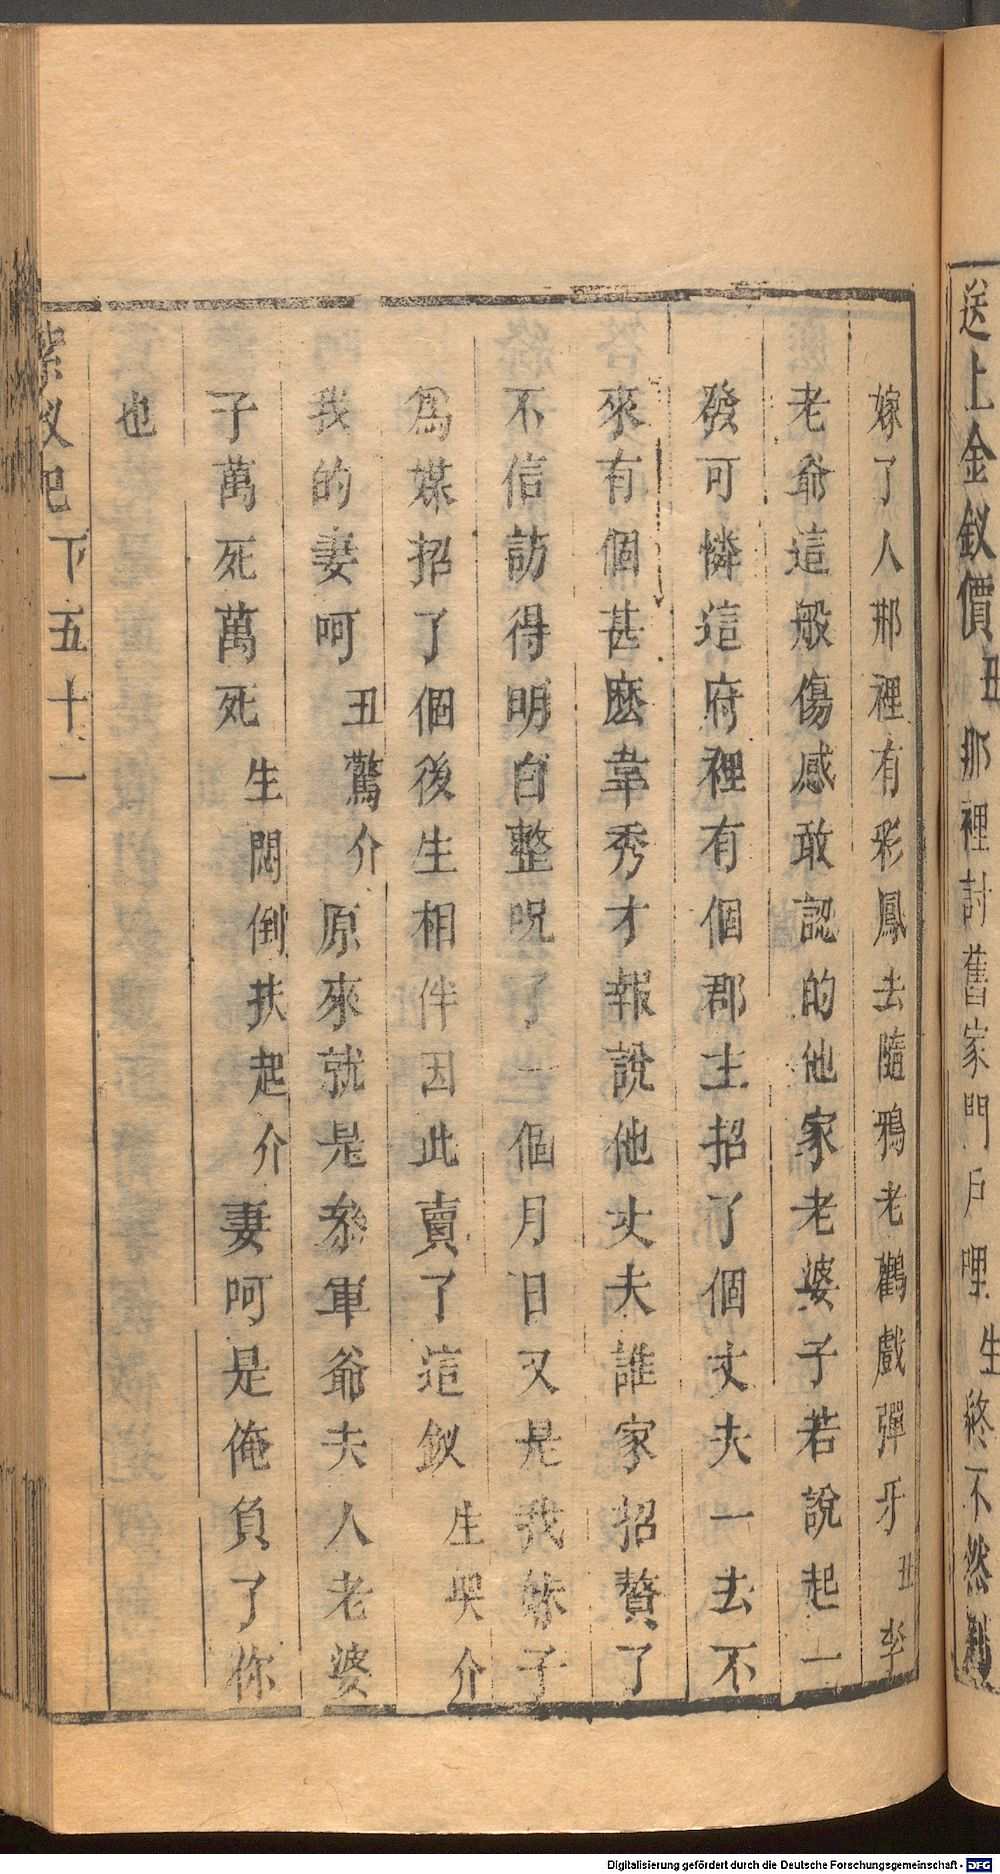 送上金釵價丑那裡討舊家門戶哩生終不然
嫁了人那裡有彩鳳去隨鴉老鸛戲彈牙丑李
老爺這般傷感敢認的他家老婆子若說起一
發可憐這府裡有個郡主招了個丈夫一去不
來有個甚麽韋秀才報說他丈夫誰家招贅了
不信訪得明白整呪了一個月日又是我妹子
爲媒招了個後生相伴因此賣了這釵生哭介
我的妻呵丑驚介原來就是叅軍爺夫人老婆
子萬死萬死生悶倒扶起介妻呵是俺負了你
也
紫釵記下五十一
Digitalisierung gefördert durch die Deutsche Forschungsgemeinschaft - DFG